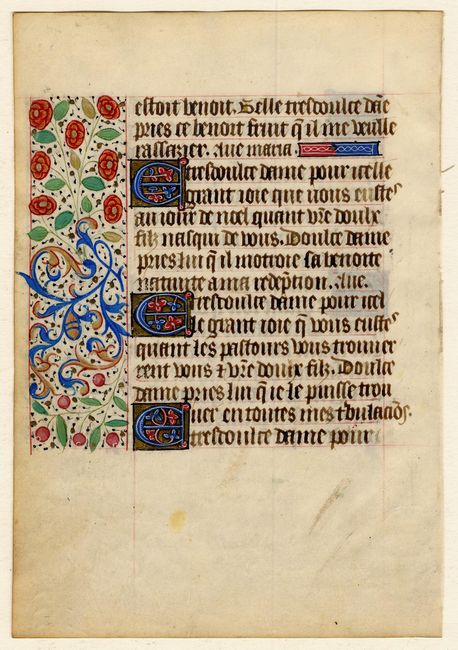 estoit benoit. Belle tresdoulce dāe
pries ce benoit fruit q̄ il me veulle
rassazier. Aue maria
Et tresdoulce dame pour icelle
grant ioie que vous eustes
au iour de noel quant vr̄e doulx
filz nasqui de vous. Doulce dame
pries lui q̄ il mottroie sa benoite
natiuite a ma redēption. Aue.
Et tresdoulce dame pour icel
le grant ioie q̄ vous eustes
quant les pastours vous trouuer
rent vous ⁊ vr̄e doulx filz. Doulce
dame pries lui q̄ ie le puisse trou
uer en toutes mes tbulaciōs.
Et tresdoulce dame pour